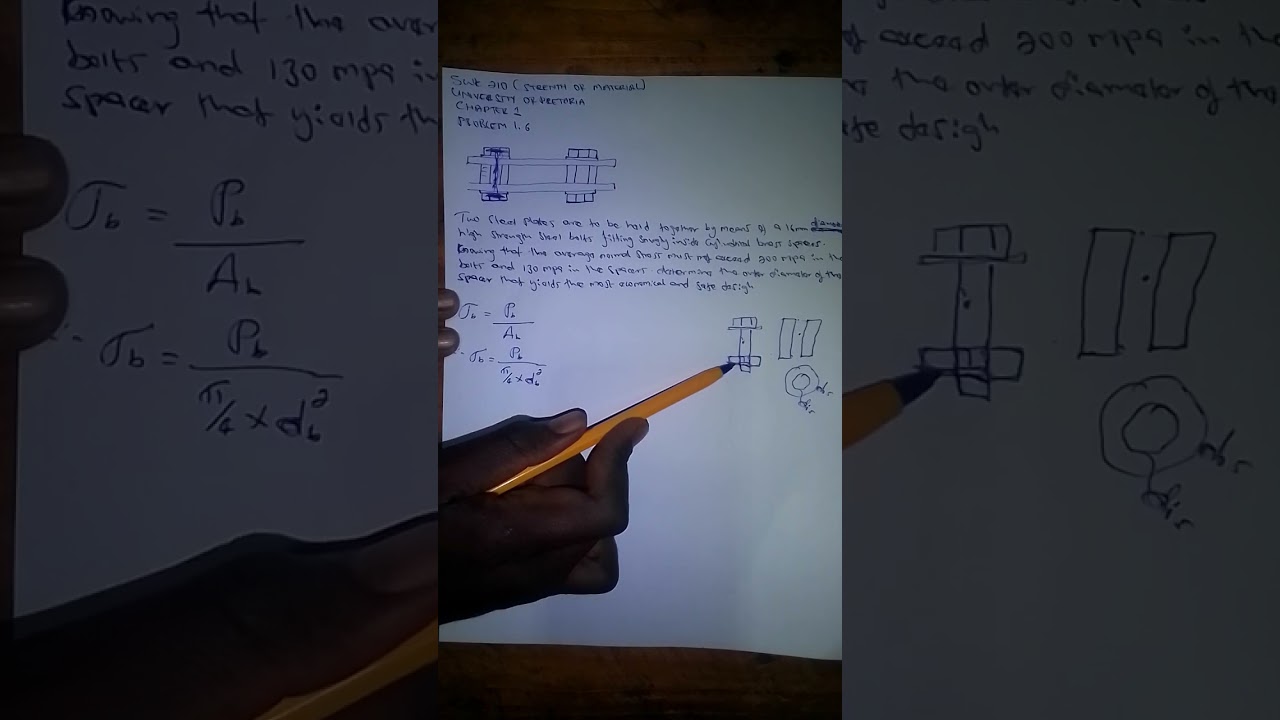 SWK 210 (STRENGTH OF MATERIAL)
UNIVERSITY OF PRETORIA
CHAPTER 1
PROBLEM 1.6
Two steel plates are to be held together by means of a 16mm
high strength steel bolts fitting snugly inside cylindrical brass spacers.
Knowing that the average normal stress must not exceed 200 mpa in the
bolts and 130 mpa in the spacers determine the outer diameter of the
spacer that yields the most economical and safe design
σb = Pb
Ab
∴ σb = Pb
π/4 × db²